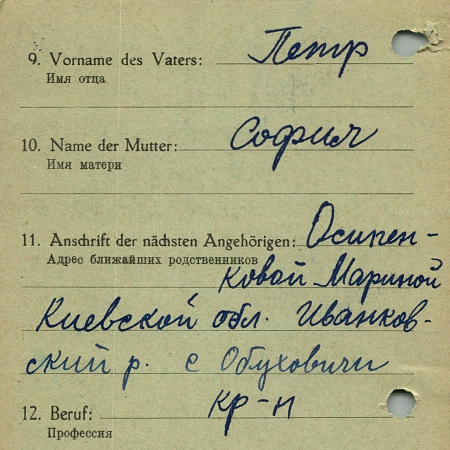 9. Vorname des Vaters: Петр
Имя отца
10. Name der Mutter: София
Имя матери
11. Anschrift der nächsten Angehörigen: Осипен-
Адрес ближайших родственников
ковой Мариной
Киевской обл. Иванков-
ский р. с Обуховичи
12. Beruf: кр-н
Профессия